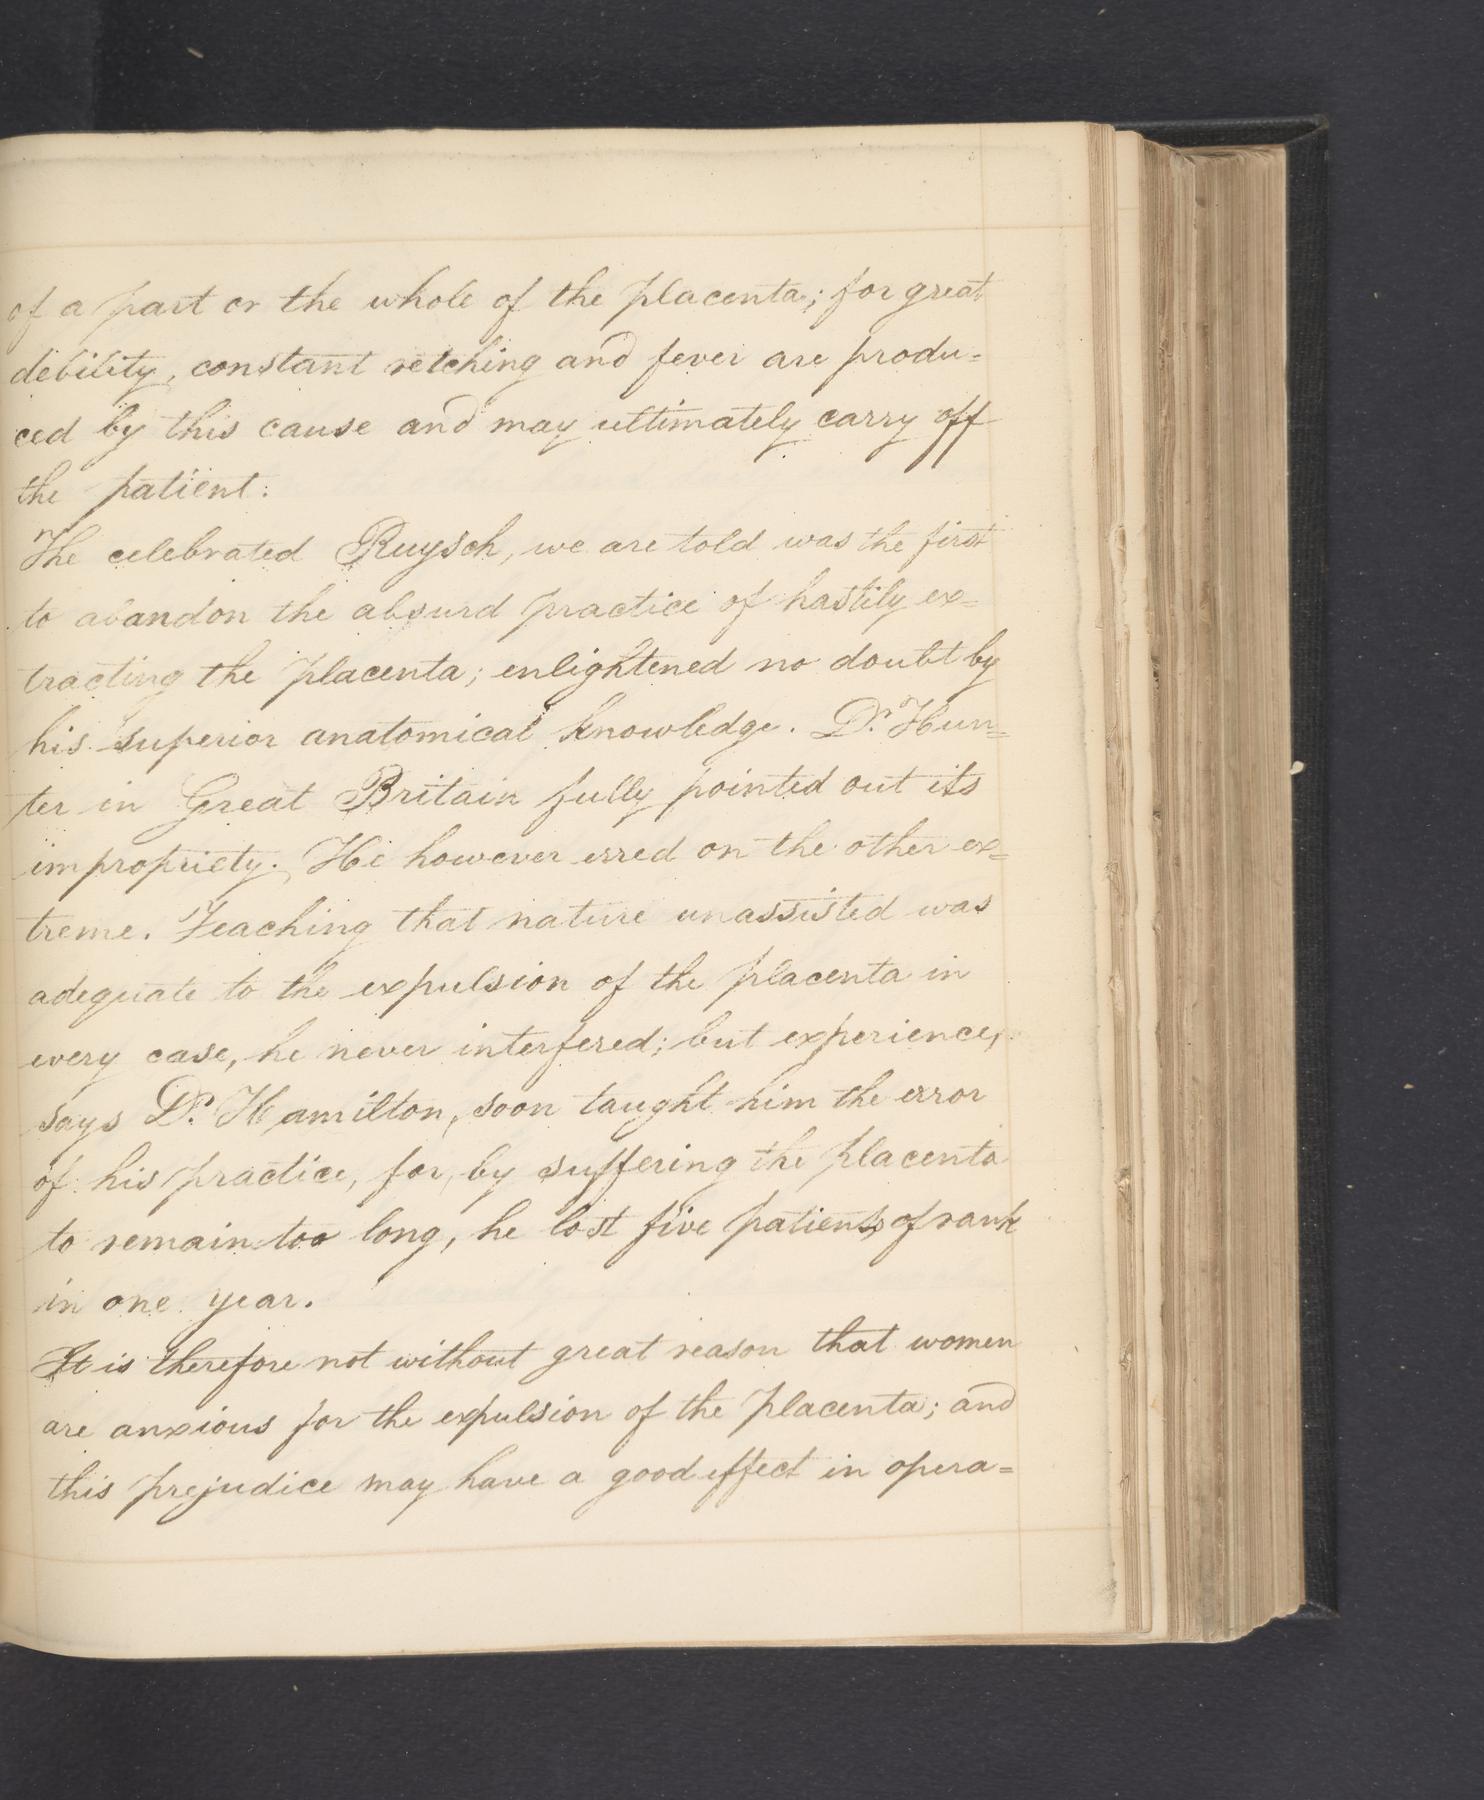 of a part or the whole of the placenta; for great
debility, constant retching and fever are produ=
ced by this cause and may ultimately carry off
the patient.
The celebrated Ruysch, we are told was the first
to abandon the absurd practice of hastily ex=
tracting the placenta; enlightened no doubt by
his superior anatomical knowledge. Dr. Hun=
ter in Great Britain fully pointed out its
impropriety. He however erred on the other ex=
treme. Teaching that nature unassisted was
adequate to the expulsion of the placenta in
every case, he never interfered; but experience,
says Dr. Hamilton, soon taught him the error
of his practice, for, by suffering the placenta
to remain too long, he lost five patients of rank
in one year.
It is therefore not without great reason that women
are anxious for the expulsion of the placenta; and
this prejudice may have a good effect in opera=